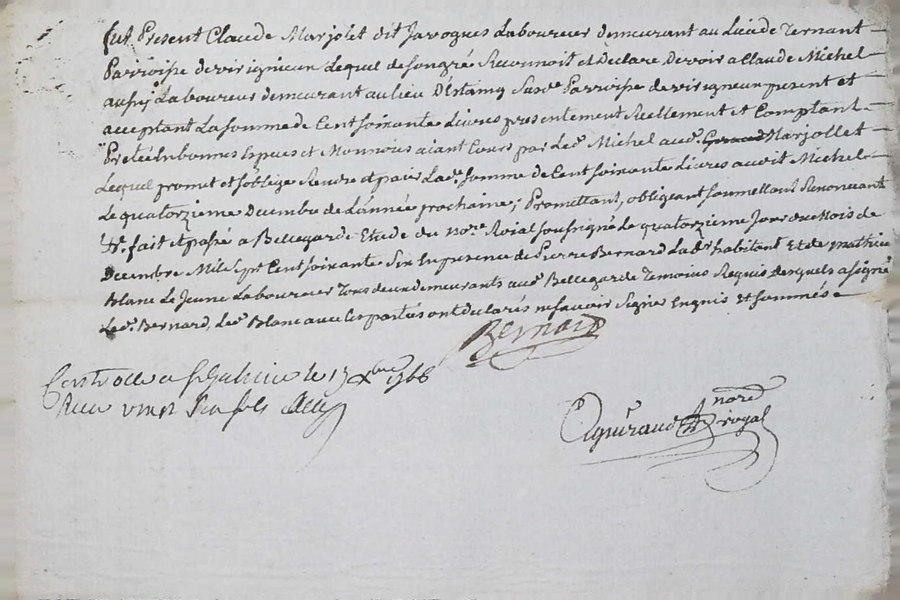 fut Present Claude Marjolet dit Javogues Laboureur demeurant au Lieu de Ternant
Parroisse de virignieun Lequel de son gré Reconnoit et Declare Devoir a Claude Michel
aussy Laboureur demeurant au lieu D'Estaing Susd.e Parroisse de virsigneun present et
acceptant La somme de Cent soixante Livres presentement Reellement et Comptant
Pretée en bonnes Especes et Monnoies aiant Cours par Led. Michel aud. Marjollet
Lequel promet et s'oblige Rendre et paier Lad.e somme de Cent soixante Livres audit Michel
Le quatorzieme Decembre de L'année prochaine, Promettant, obligeant soumettant Renonceant
fait et passé a Bellegarde Etude du no.re Roial soussigné Le quatorzieme Jour du Mois de
Decembre Mil Sept Cent soixante Six En presence de Pierre Bernard Lab.r habitant Et de mathieu
Blanc Le Jeune Laboureur Tous deux demeurants aud. Bellegarde Temoins Requis desquels a signé
Led. Bernard, Led. Blanc avec les parties ont declarés ne savoir Signer Enquis et sommés
Bernard
Controllé a st Galmier le 17 Xbre 1766
Receu vingt sols
nore
royal